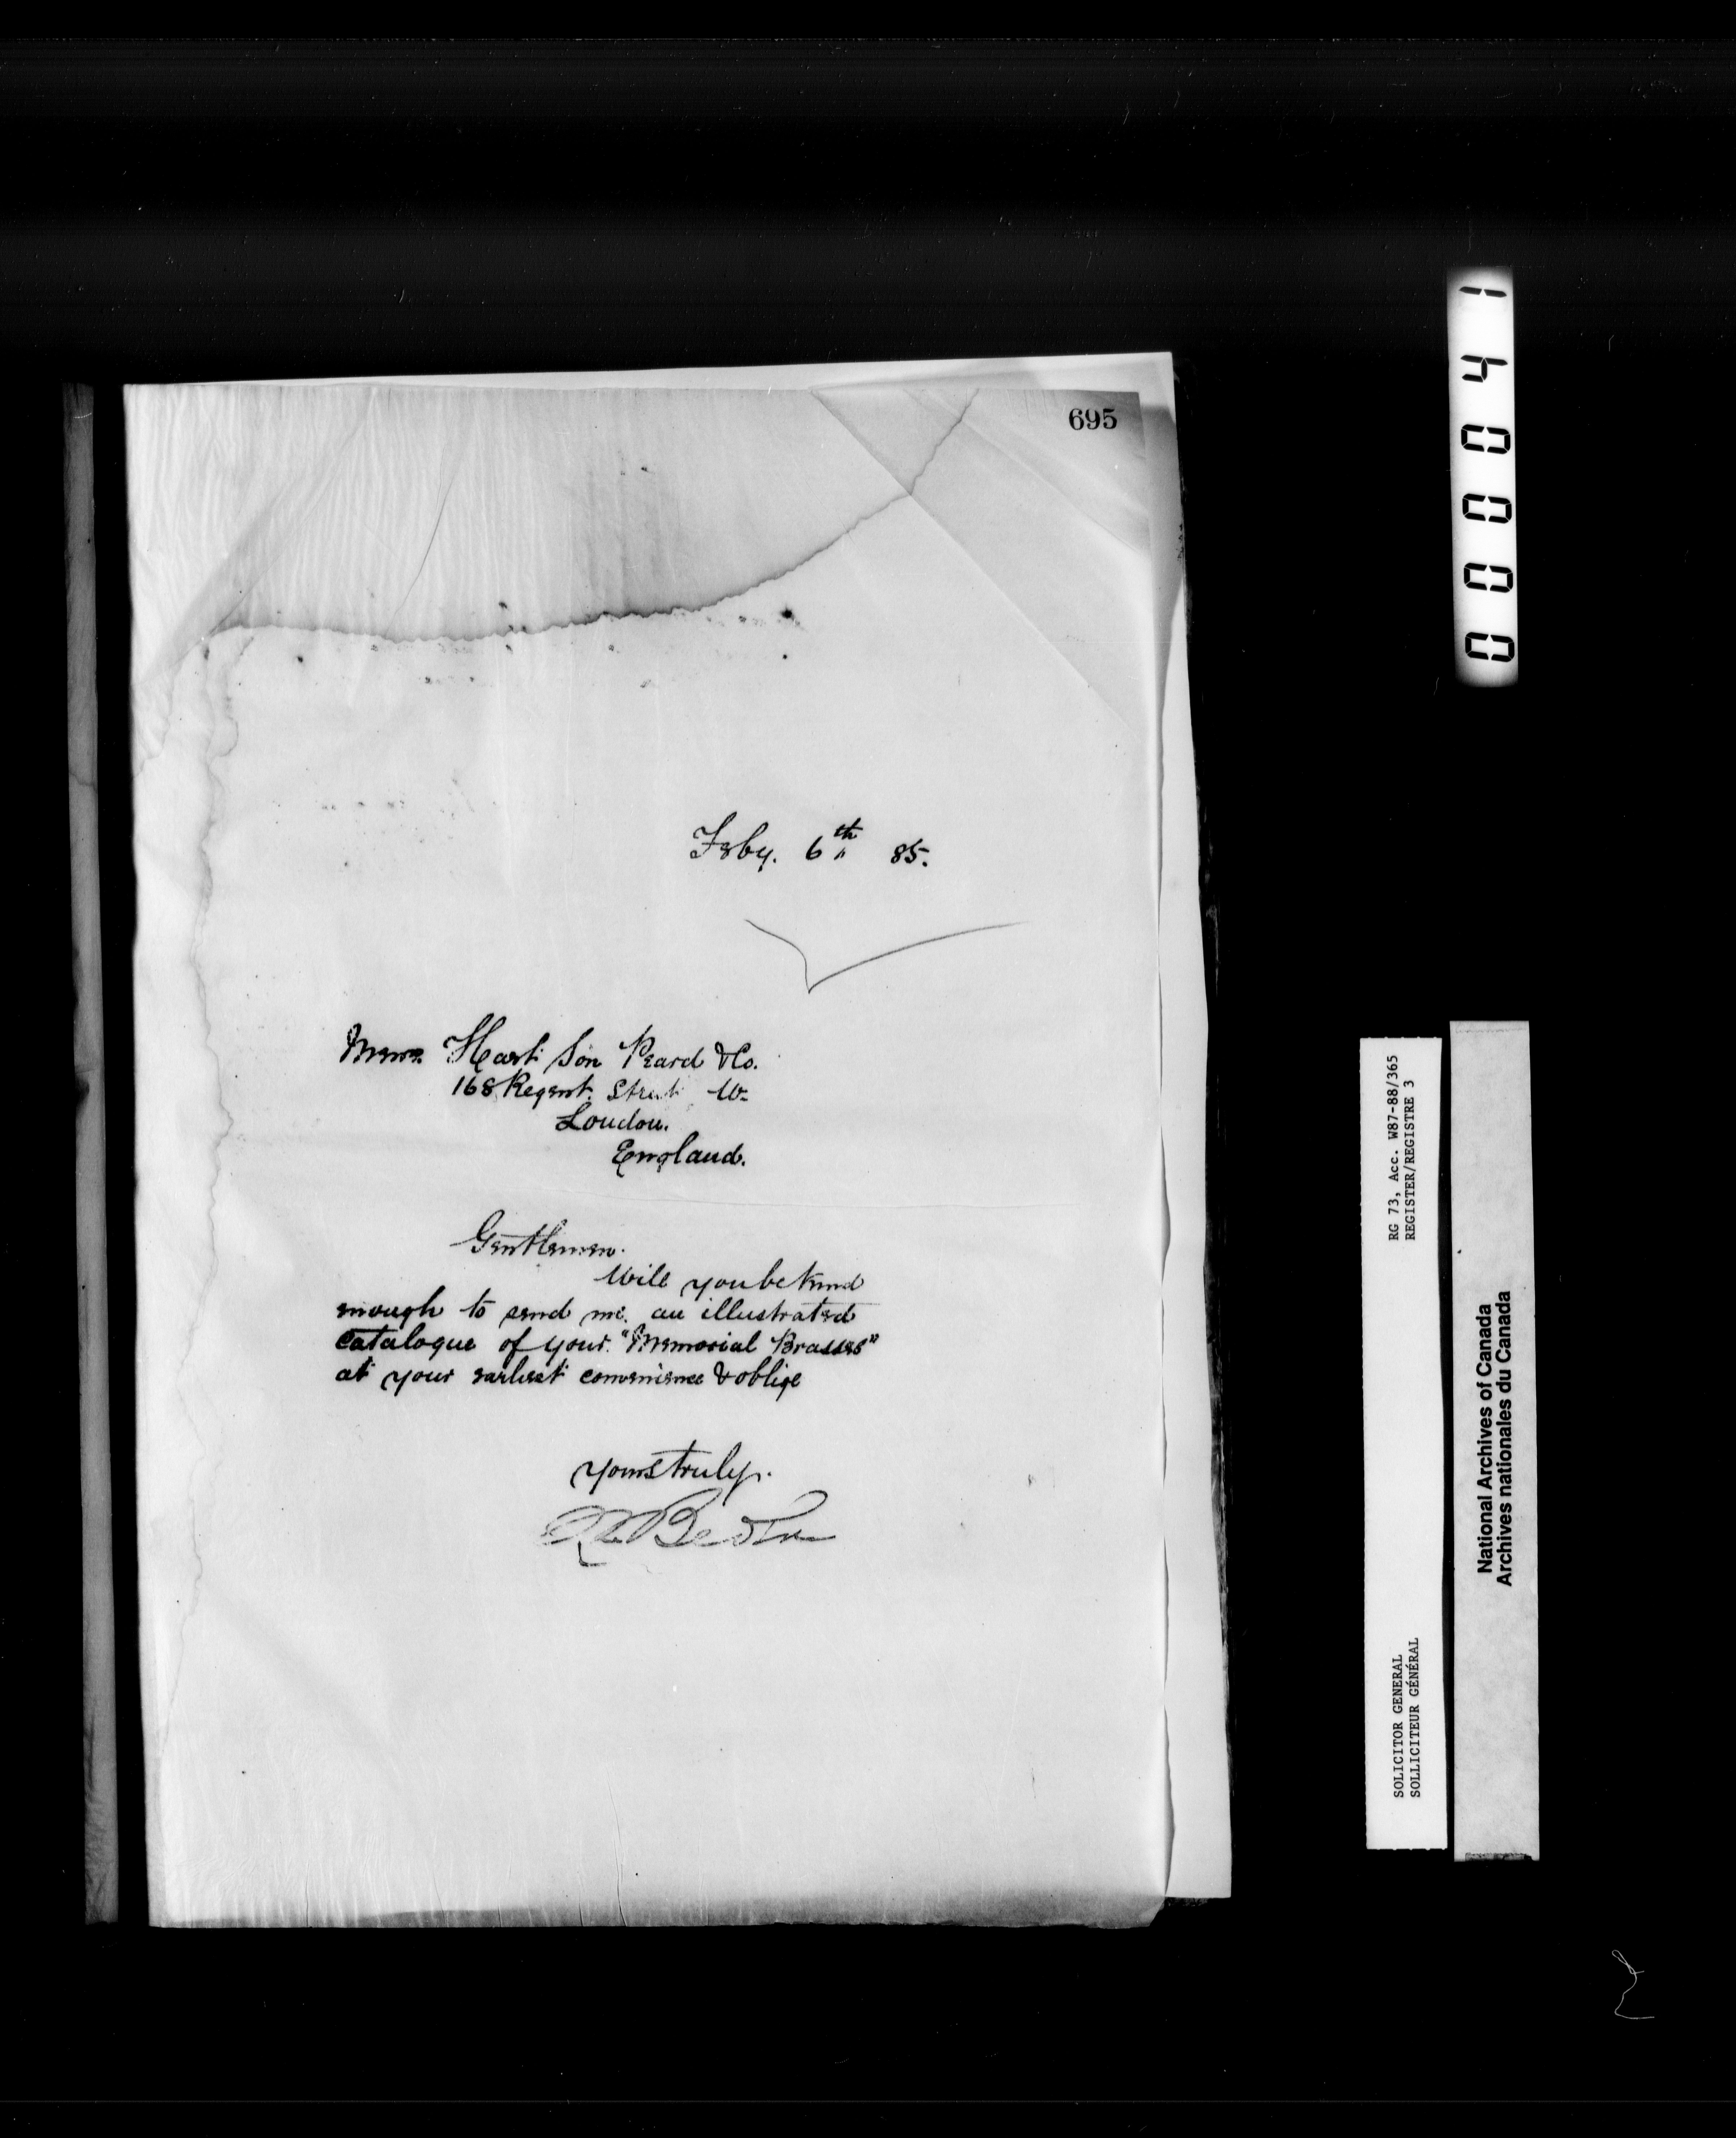 695
Feby. 6th 85.
Messrs. Hart Son Peard & Co.
168 Regent Street W.
London.
England.
Gentlemen.
Will you be kind
enough to send me. an illustrated
catalogue of your "Memorial Brasses"
at your earliest convenience & oblige
yours truly.
000041
RG 73, Acc. W87-88/365
REGISTER/REGISTRE 3
SOLICITOR GENERAL
SOLLICITEUR GÉNÉRAL
National Archives of Canada
Archives nationales du Canada